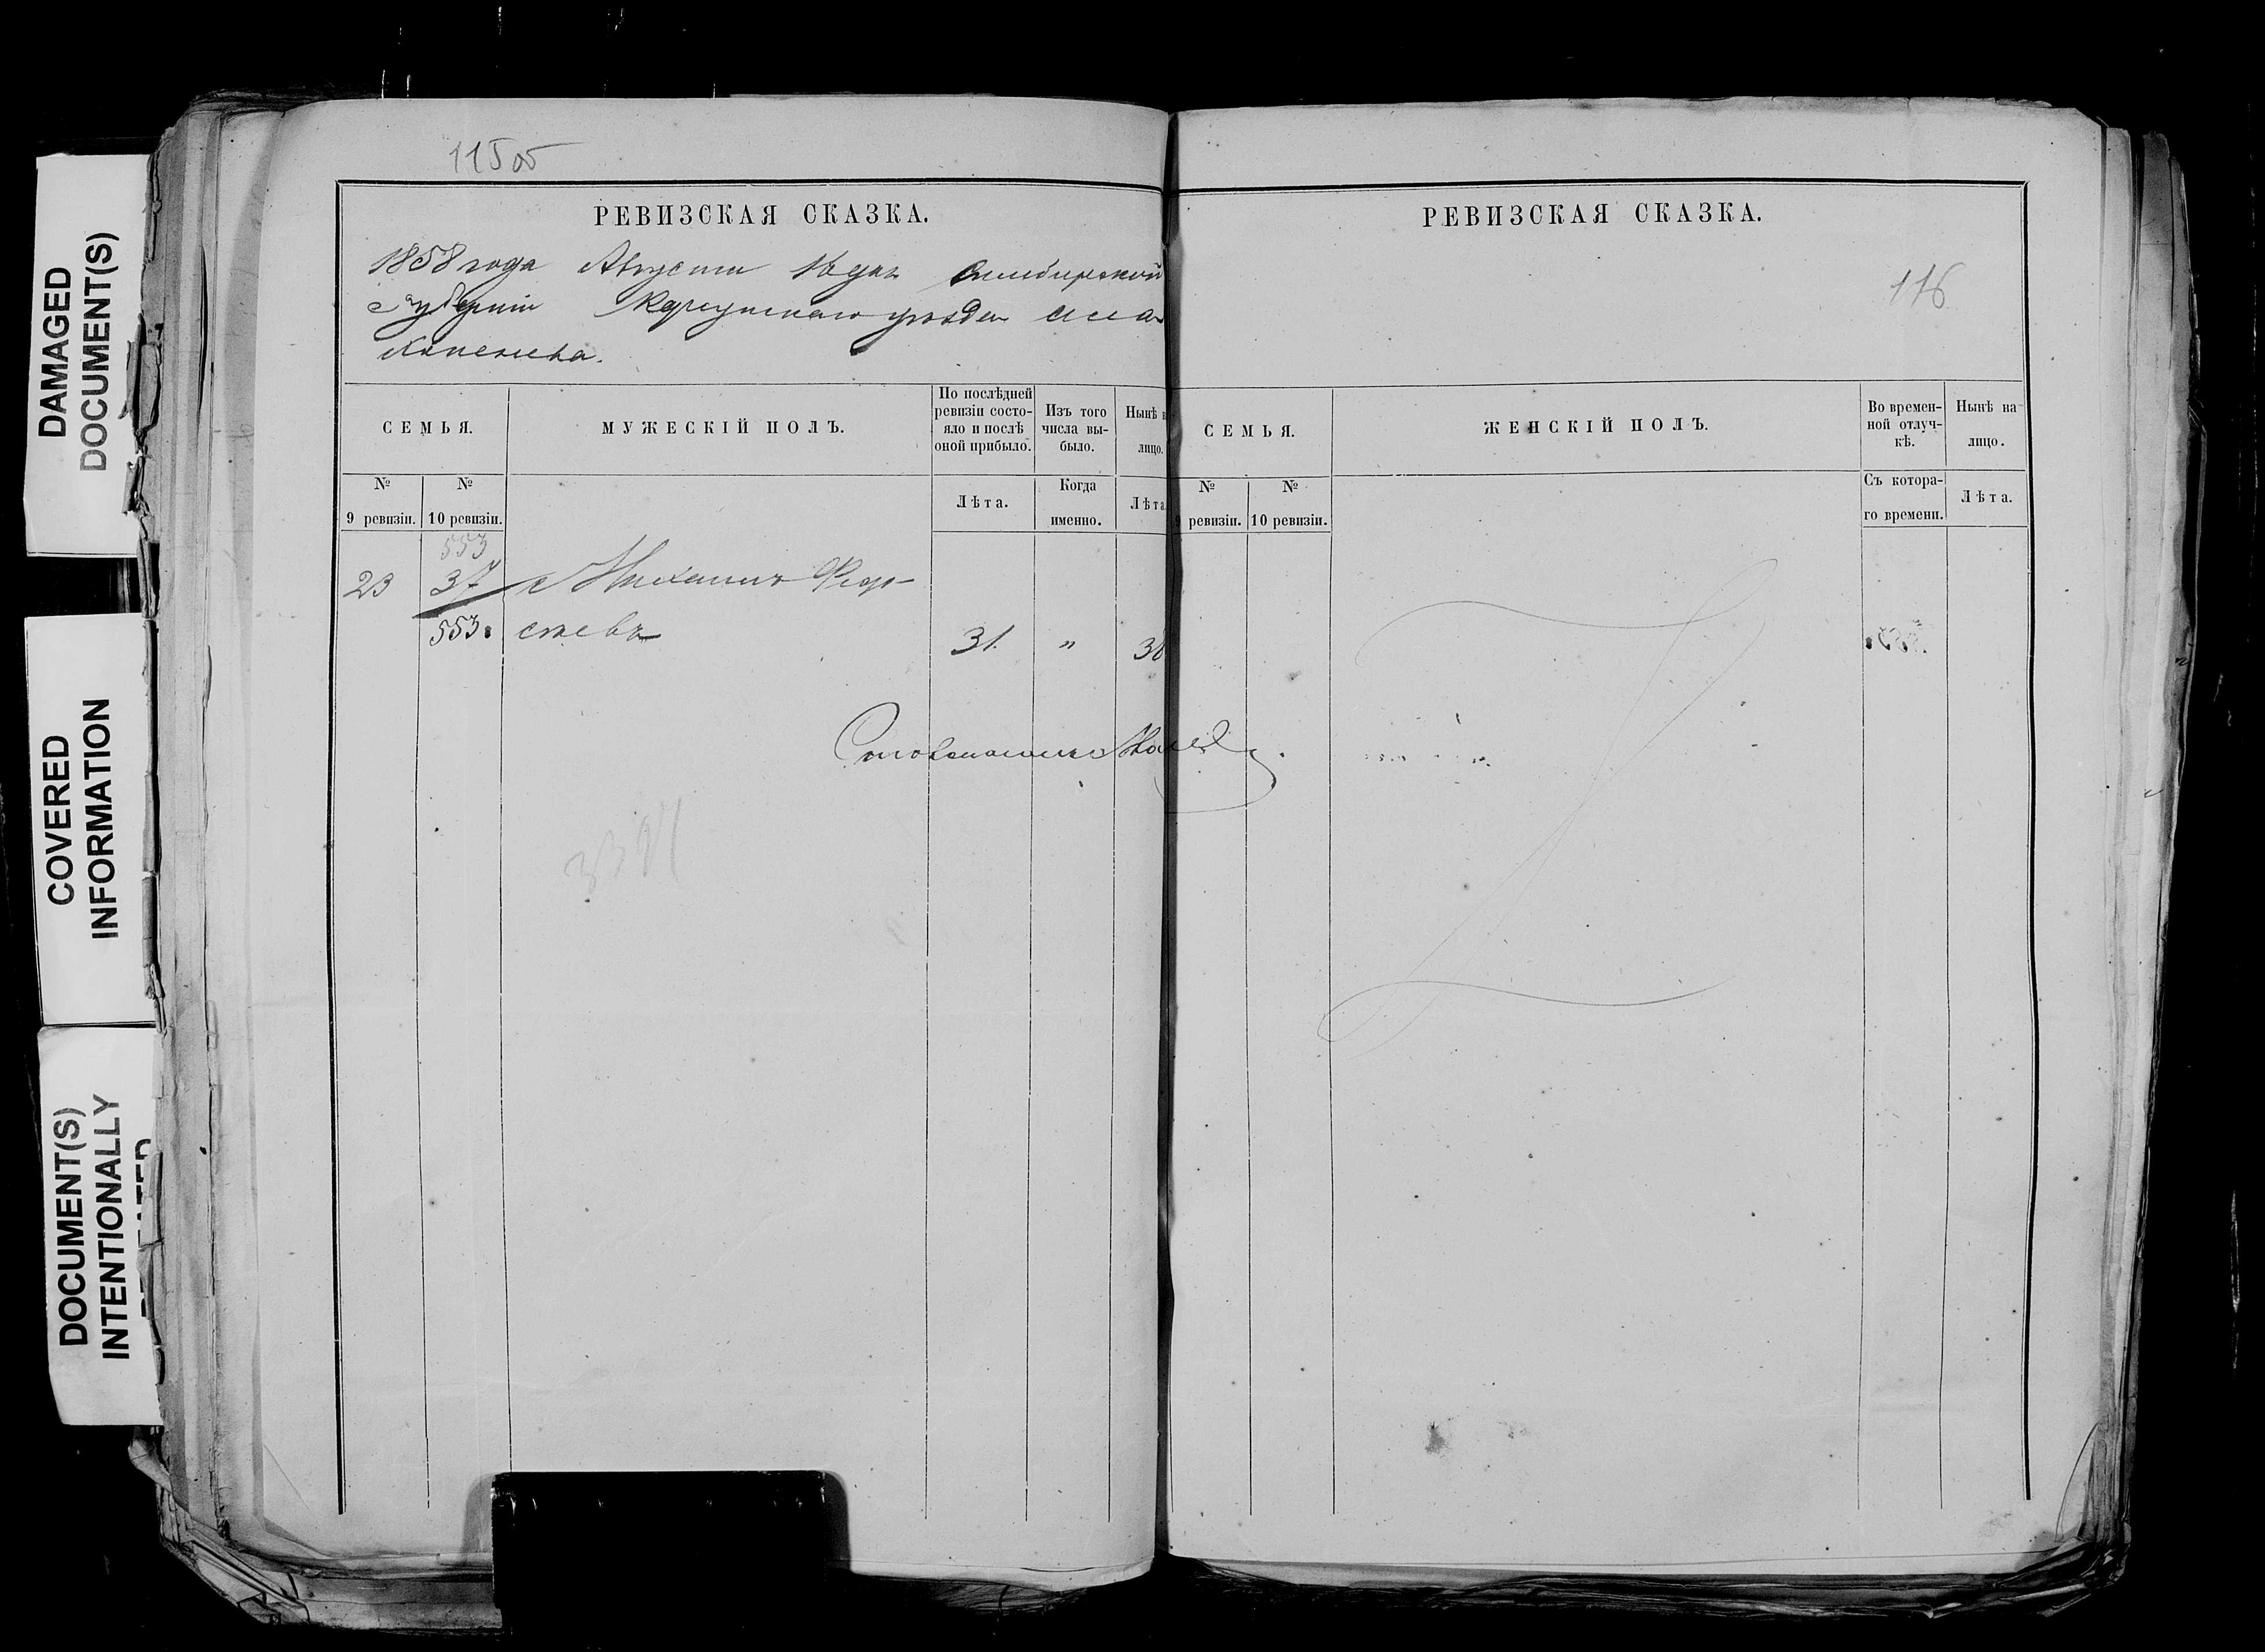 DAMAGED
DOCUMENT(S)
COVERED
INFORMATION
DOCUMENT(S)
INTENTIONALLY
РЕВИЗСКАЯ СКАЗКА.
1858 года Августа дня Симбирской
Губерніи Карсунскаго уѣзда
СЕМЬЯ.
МУЖЕСКІЙ ПОЛЪ.
По послѣдней
ревизіи состо-
яло и послѣ
оной прибыло.
Изъ того
числа вы-
было.
Нынѣ
лицо.
№
9 ревизіи.
№
10 ревизіи.
Лѣта.
Когда
именно.
Лѣта
553
23 37 Михаила
553
31. „ 38
РЕВИЗСКАЯ СКАЗКА.
116
СЕМЬЯ.
ЖЕНСКІЙ ПОЛЪ.
Во времен-
ной отлуч-
кѣ.
Нынѣ на
лицо.
№
ревизіи.
№
10 ревизіи.
Съ котора-
го времени.
Лѣта.